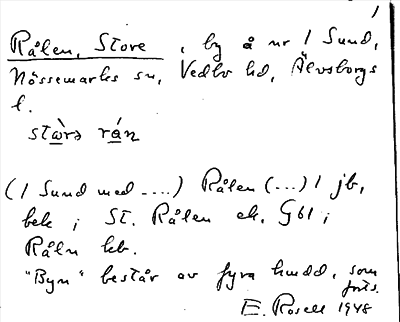 1
Rålen, Store, by å nr 1 Sund,
Nössemarks sn, Vedbo hd, Älvsborgs
l.
stòrə rán
(1 Sund med ....) Rålen (...) 1 jb,
bek i St. Rålen ek. G61;
Råln kb.
"Byn" består av fyra hudd, som
forts.
E. Rosell 1948